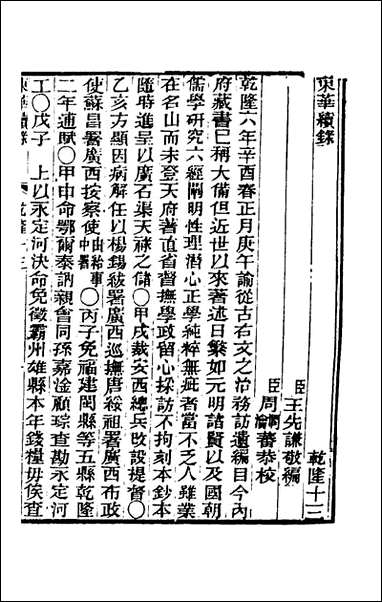 東華續錄
乾隆十三
臣王先謙敬編
臣周瀹蕃恭校
乾隆六年辛酉春正月庚午諭從古右文之治務訪遺編目今內
府藏書已稱大備但近世以來著述日繁如元明諸賢以及國朝
儒學研究六經闡明性理潛心正學純粹無疵者當不乏人雖業
在名山而未登天府著直省督撫學政留心採訪不拘刻本鈔本
隨時進呈以廣石渠天祿之儲○甲戌裁安西總兵改設提督○
乙亥方顯因病解任以楊錫紱署廣西巡撫唐綏祖署廣西布政
使蘇昌署廣西按察使由給事中署○丙子免福建閩縣等五縣乾隆
二年逋賦○甲申命鄂爾泰訥親會同孫嘉淦顧琮查勘永定河
工○戊子 上以永定河決命免徵霸州雄縣本年錢糧毋俟查
東華續錄 乾隆十三